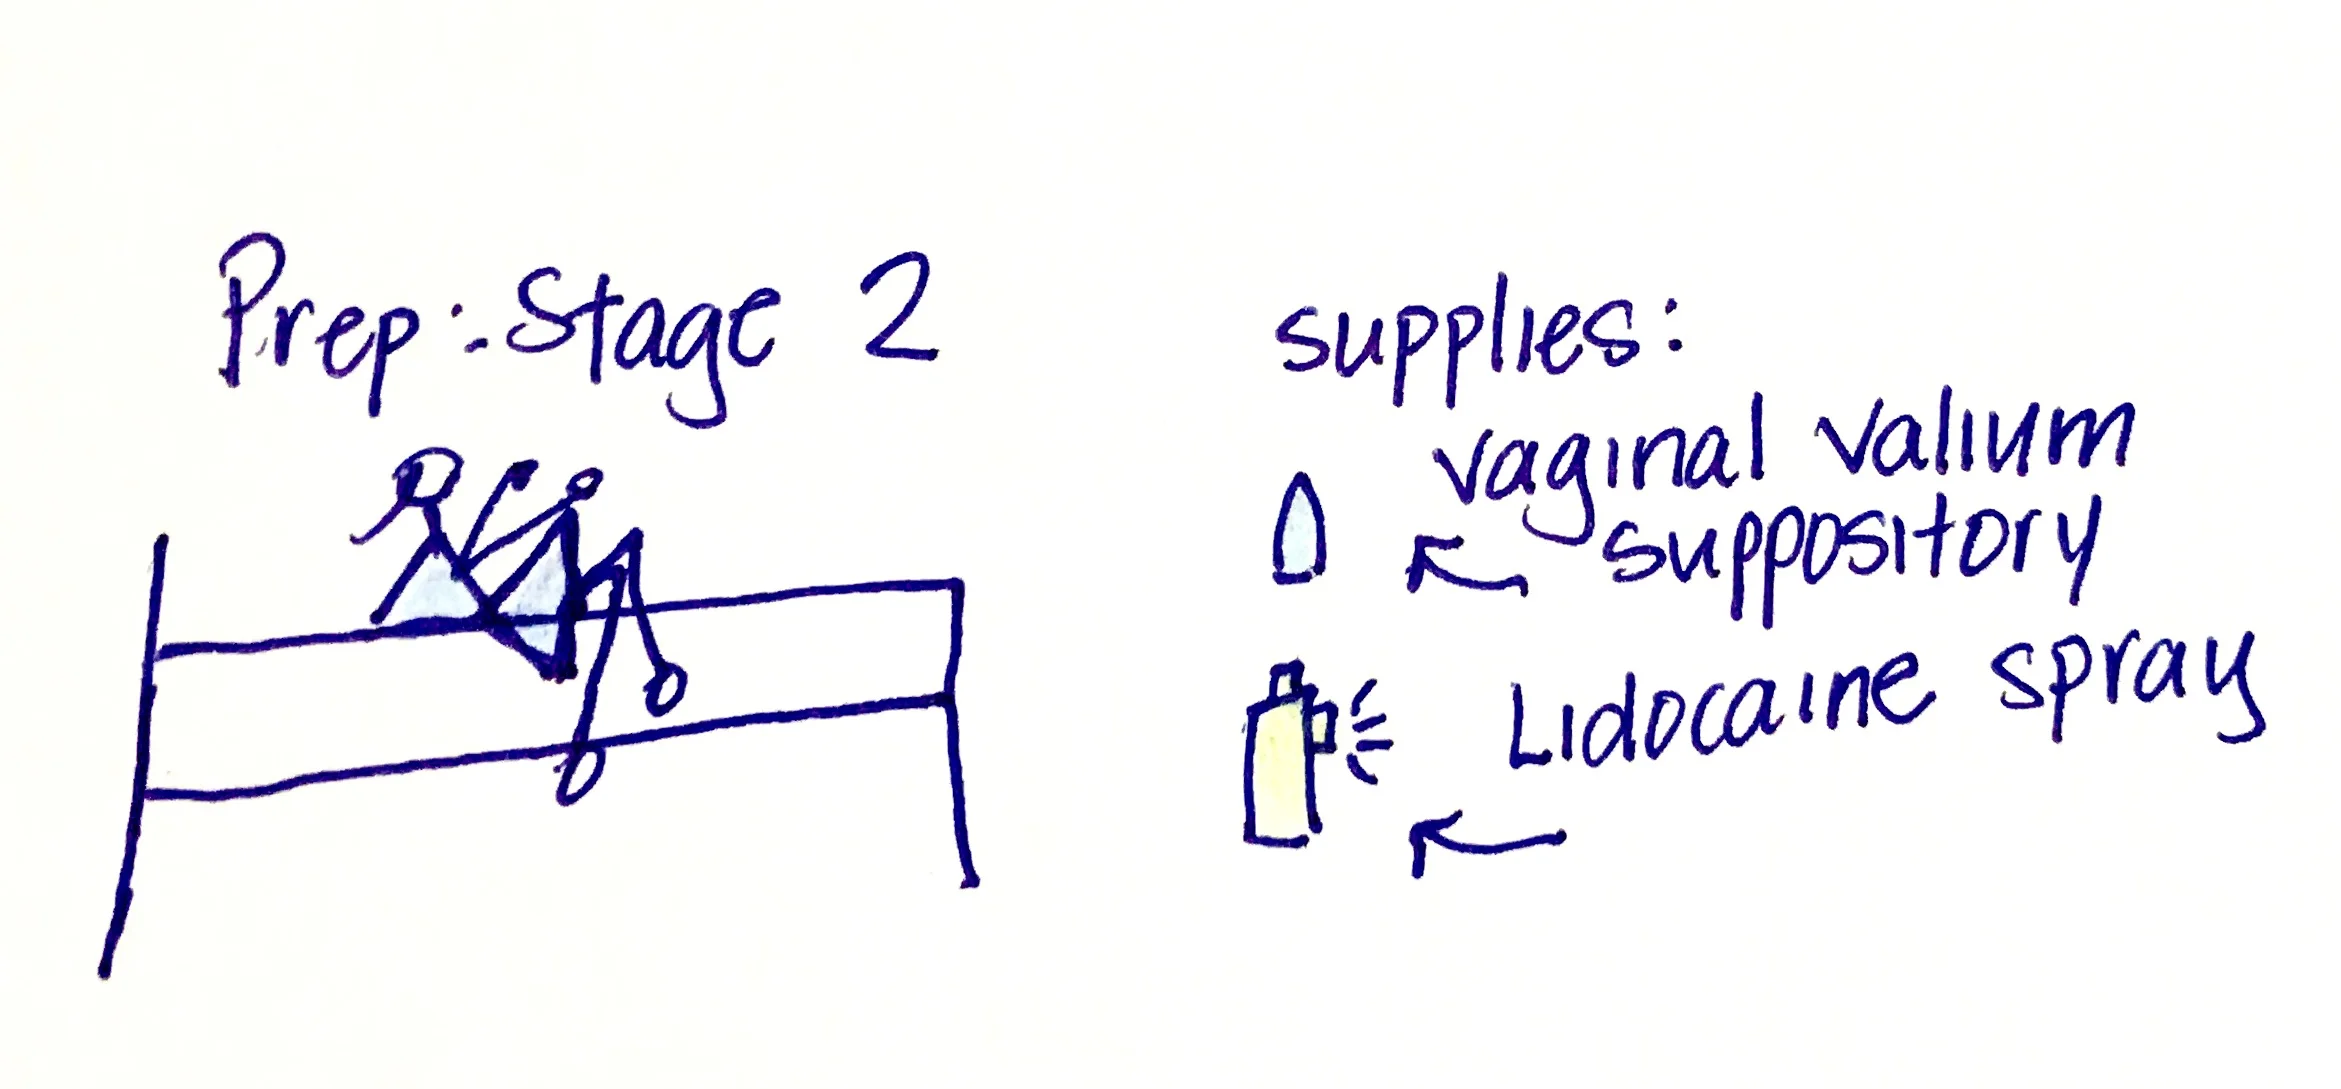 Prep: Stage 2
supplies:
vaginal valium
suppository
Lidocaine spray